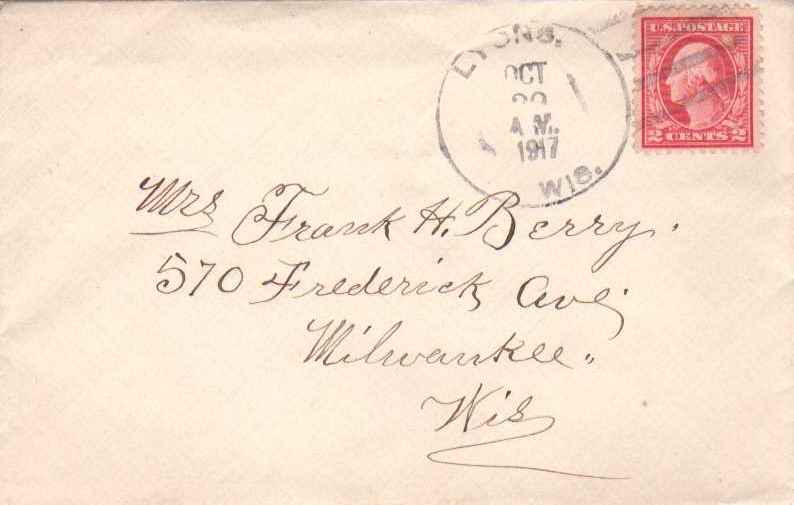 LYONS.
OCT
A.M.
1917
WIS.
U.S. POSTAGE
2 CENTS 2
Mrs Frank H. Berry.
570 Frederick Ave;
Milwaukee.,
Wis